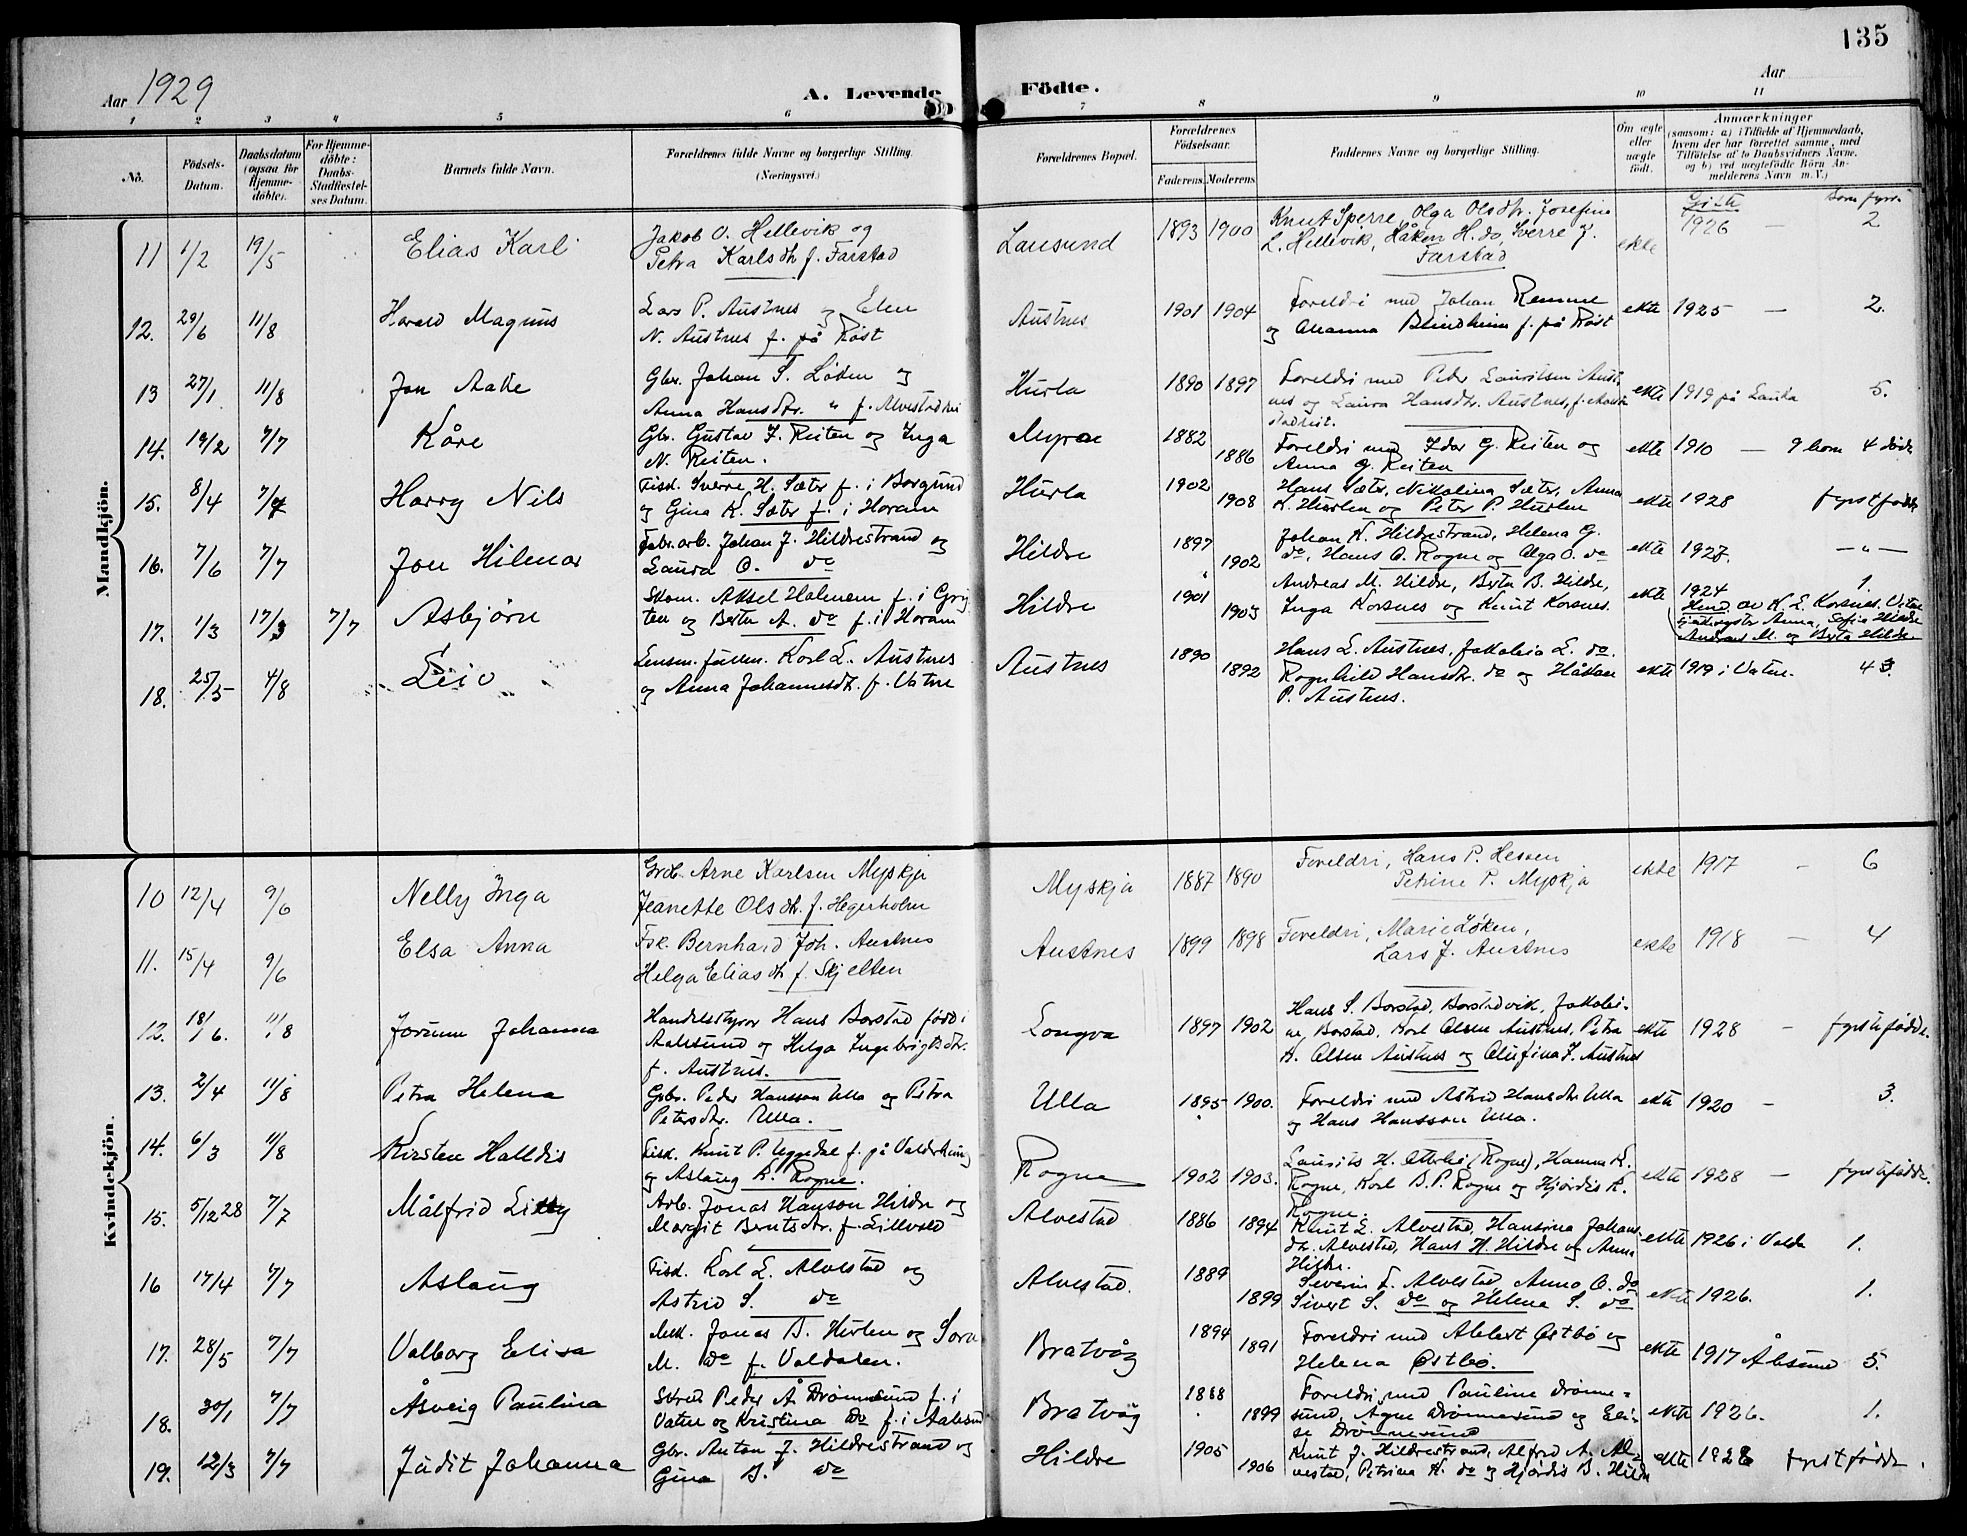 135
Aar 1929
A. Levende Födte.
Aar
1 2 3 4 5 6 7 8 9 10 11
No.
Födsels-Datum.
Daabsdatum (ogsaa for Hjemme-döbte).
For Hjemme-döbte: Daabs-Stadfæstel-ses Datum.
Barnets fulde Navn.
Forældrenes fulde Navne og borgerlige Stilling.
(Næringsvei.)
Forældrenes Bopæl.
Forældrenes Födselsaar.
Faderens. Moderens.
Faddernes Navne og borgerlige Stilling.
Om ægte eller uægte födt.
Anmærkninger
(saasom: a) i Tilfælde af Hjemmedaab, hvem der har forrettet samme, med Tilföielse af to Daabsvidners Navne, og b) ved uægtefödte Börn An-melderens Navn m. V.)
Mandkjön.
11 1/2 19/5 Elias Karl
Jakob O. Hellevik og
Petra Karlsdtr f. Farstad
Lausund 1893 1900
Knut Sperre, Olga Olsdtr. Josefine
L. Hellevik, Håken H. do, Sverre J.
Farstad
ekte Gifte 1926 — 2
12. 29/6 11/8 Harald Magnus
Lars P. Austnes og Elen
N. Austnes f. på Røst
Austnes 1901 1904
Foreldri med Johan Remme
og Olianna Blindheim f. på Røst
ekte 1925 — 2.
13 27/1 11/8 Jon Aake
Gbr. Johan S. Løken og
Anna Hansdtr. " f. Alvestad
Hurla 1890 1897
Foreldri med Peder Lauritsen Aust-
nes og Laura Hansdtr. Austnes,
ekte 1919 5.
14. 19/2 7/7 Kåre
Gbr. Gustav J. Reiten og Inga
N. Reiten.
Myran 1882 1886
Foreldri med Idar G. Reiten og
Anna G. Reiten
ekte 1910 — 9 born 4 døde
15. 8/4 7/7 Harry Nils
Fisk. Sverre H. Sæter f. i Borgund
og Gina K. Sæter f. i Horam
Hurla 1902 1908
Hans Sæter, Nikolina Sæter, Anna
K. Hurlen og Peter P. Hurlen
ekte 1928 fyrstfødde
16. 7/6 7/7 Jon Hilmar
Fabr. arb. Johan J. Hildrestrand og
Laura O. do
Hildre 1897 1902
Johan K. Hildrestrand, Helena G.
do, Hans O. Rogne og Olga O. do
ekte 1927. — " —
17. 1/3 17/3 7/7 Asbjørn
Skom. Aksel Holmem f. i Gry-
ten og Berta A. do f. i Horam
Hildre 1901 1903
Andreas M. Hildre, Berta B. Hildre,
Inga Korsnes og Knut Korsnes.
ekte 1924 1.
Hmd. av K. L. Korsnes. Vitne
Anna, Sofie Hildre
Andreas M. og Berta Hildre
18. 25/5 4/8 Leiv
Lensm. fullm. Karl L. Austnes
og Anna Johannesdtr. f. Vatne
Austnes 1890 1892
Hans L. Austnes, Jakobia L. do.
Ragnhild Hansdtr. do og Håkon
P. Austnes.
ekte 1919 i Vatne. 4 3.
Kvindekjön.
10 12/4 9/6 Nelly Inga
Grdb. Arne Karlsen Myskja
Jeanette Olsdtr. f. Hegerholm
Myskja 1887 1890
Foreldri, Hans P. Hessen
Petrine P. Myskja
ekte 1917 - 6
11. 15/4 9/6 Elsa Anna
Fsk. Bernhard Joh. Austnes
Helga Eliasdtr f. Skjelten
Austnes 1899 1898
Foreldri, Marie Løken,
Lars J. Austnes
ekte 1918 - 4
12. 18/6. 11/8 Jorunn Johanna
Handelsstyrer Hans Borstad født i
Aalesund og Helga Ingebrigtsdtr.
f. Austnes.
Longva 1897 1902
Hans S. Borstad, Borstadvik, Jakobi-
ne Borstad. Karl Olsen Austnes, Petra
K. Olsen Austnes og Olufina J. Austnes
ekte 1928 - fyrstefødde.
13. 2/4 11/8 Petra Helena
Gbr. Peder Hansson Ulla og Petra
Petersdtr. Ulla.
Ulla 1895 1900.
Foreldri med Astrid Hansdtr. Ulla
og Hans Hansson Ulla.
ekte 1920 - 3.
14. 6/3 11/8 Kirsten Halldis
Fisk. Knut P. Uggedal f. på Valderhaug
og Aslaug K. Rogne.
Rogne 1902 1903.
Laurits H. Otterlei (Rogne), Hanna K.
Rogne, Karl B. P. Rogne og Hjørdis K.
Rogne.
ekte 1928 — fyrstefødde.
15. 5/12 28 7/7 Målfrid Lilly
Arb. Jonas Hansson Hildre og
Margit Berntsdtr. f. Lillevold
Alvestad 1886 1894
Knut L. Alvestad, Hansina Johans-
dtr. Alvestad, Hans H. Hildre og Anna
Hildre.
ekte 1926 i Volda 1.
16 17/4 7/7 Aslaug
Fisk. Karl L. Alvestad og
Astrid S. do
Alvestad. 1889 1899
Severin L. Alvestad, Anna O. do
Sivert S. do og Helena S. do
ekte 1926. 1.
17. 28/5 7/7 Valborg Elisa
Mek. Jonas B. Hurlen og Sara
M. do f. Valdalen.
Bratvåg 1894 1891
Foreldri med Albert Østbø og
Helena Østbø.
ekte 1917 Ålesund 5.
18. 30/1 7/7 Åsveig Paulina
Skred. Peder Å. Drønnesund f. i
Vatne og Kristina do f. i Aalesund
Bratvåg 1888 1899
Foreldri med Pauline Drønne-
sund, Agne Drønnesund og Eli-
se Drønnesund
ekte 1926. 1.
19. 12/3 7/7 Judit Johanna
Gbr. Anton J. Hildrestrand og
Gina B. do
Hildre 1905 1906
Knut J. Hildrestrand, Alfred A. Al-
vestad, Petrina K. do og Hjørdis B. Hildre
ekte 1928 fyrstfødde.